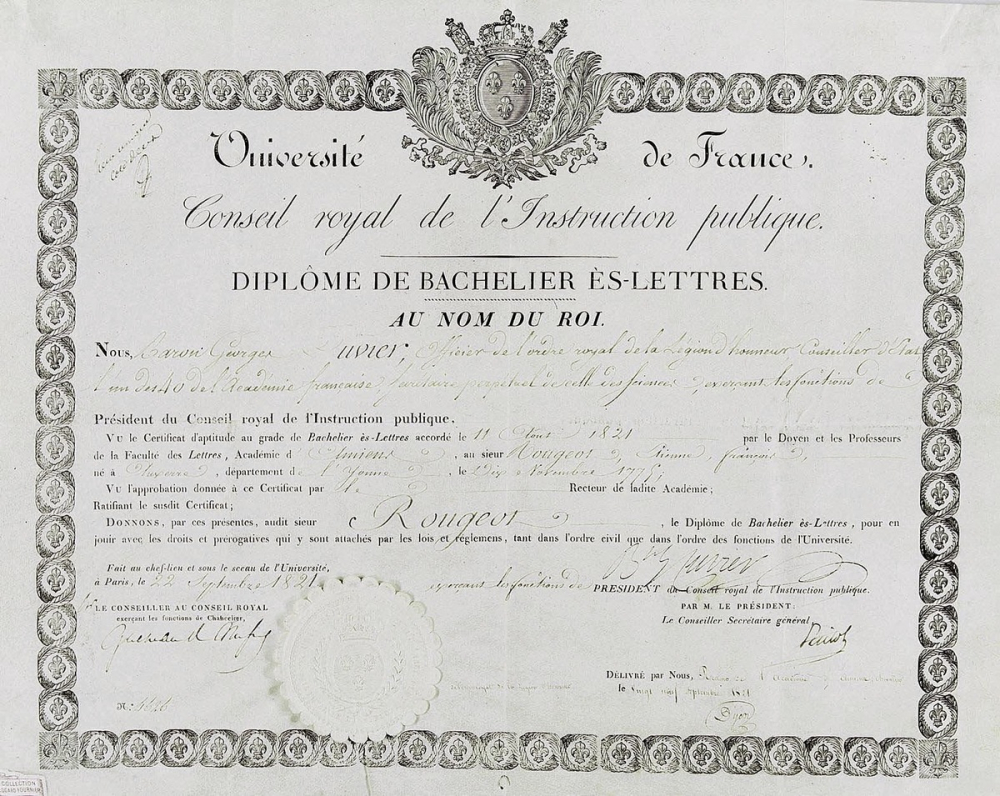 Université de France.
Conseil royal de l'Instruction publique.
DIPLÔME DE BACHELIER ÈS-LETTRES.
AU NOM DU ROI.
Nous, Baron Georges Cuvier, officier de l'ordre royal de la Légion d'honneur, Conseiller d'Etat
l'un des 40 de l'Académie française, Secrétaire perpétuel de celle des sciences, exerçant les fonctions de
Président du Conseil royal de l'Instruction publique,
Vu le Certificat d'aptitude au grade de Bachelier ès-Lettres accordé le 11 Aout 1821 par le Doyen et les Professeurs
de la Faculté des Lettres, Académie d'Amiens, au sieur Rougeot, Etienne, françois
né à Auxerre, département de l'Yonne, le Dix Novembre 1775;
Vu l'approbation donnée à ce Certificat par le Recteur de ladite Académie;
Ratifiant le susdit Certificat;
Donnons, par ces présentes, audit sieur Rougeot, le Diplôme de Bachelier ès-Lettres, pour en
jouir avec les droits et prérogatives qui y sont attachés par les lois et réglemens, tant dans l'ordre civil que dans l'ordre des fonctions de l'Université.
Fait au chef-lieu et sous le sceau de l'Université,
à Paris, le 22 Septembre 1821
exerçant les fonctions de PRÉSIDENT du Conseil royal de l'Instruction publique.
Bon Cuvier
LE CONSEILLER AU CONSEIL ROYAL
exerçant les fonctions de Chancelier,
PAR M. LE PRÉSIDENT:
Le Conseiller Secrétaire général,
DÉLIVRÉ par Nous, Recteur de l'Académie
le vingt neuf septembre 1821
N.
COLLECTION